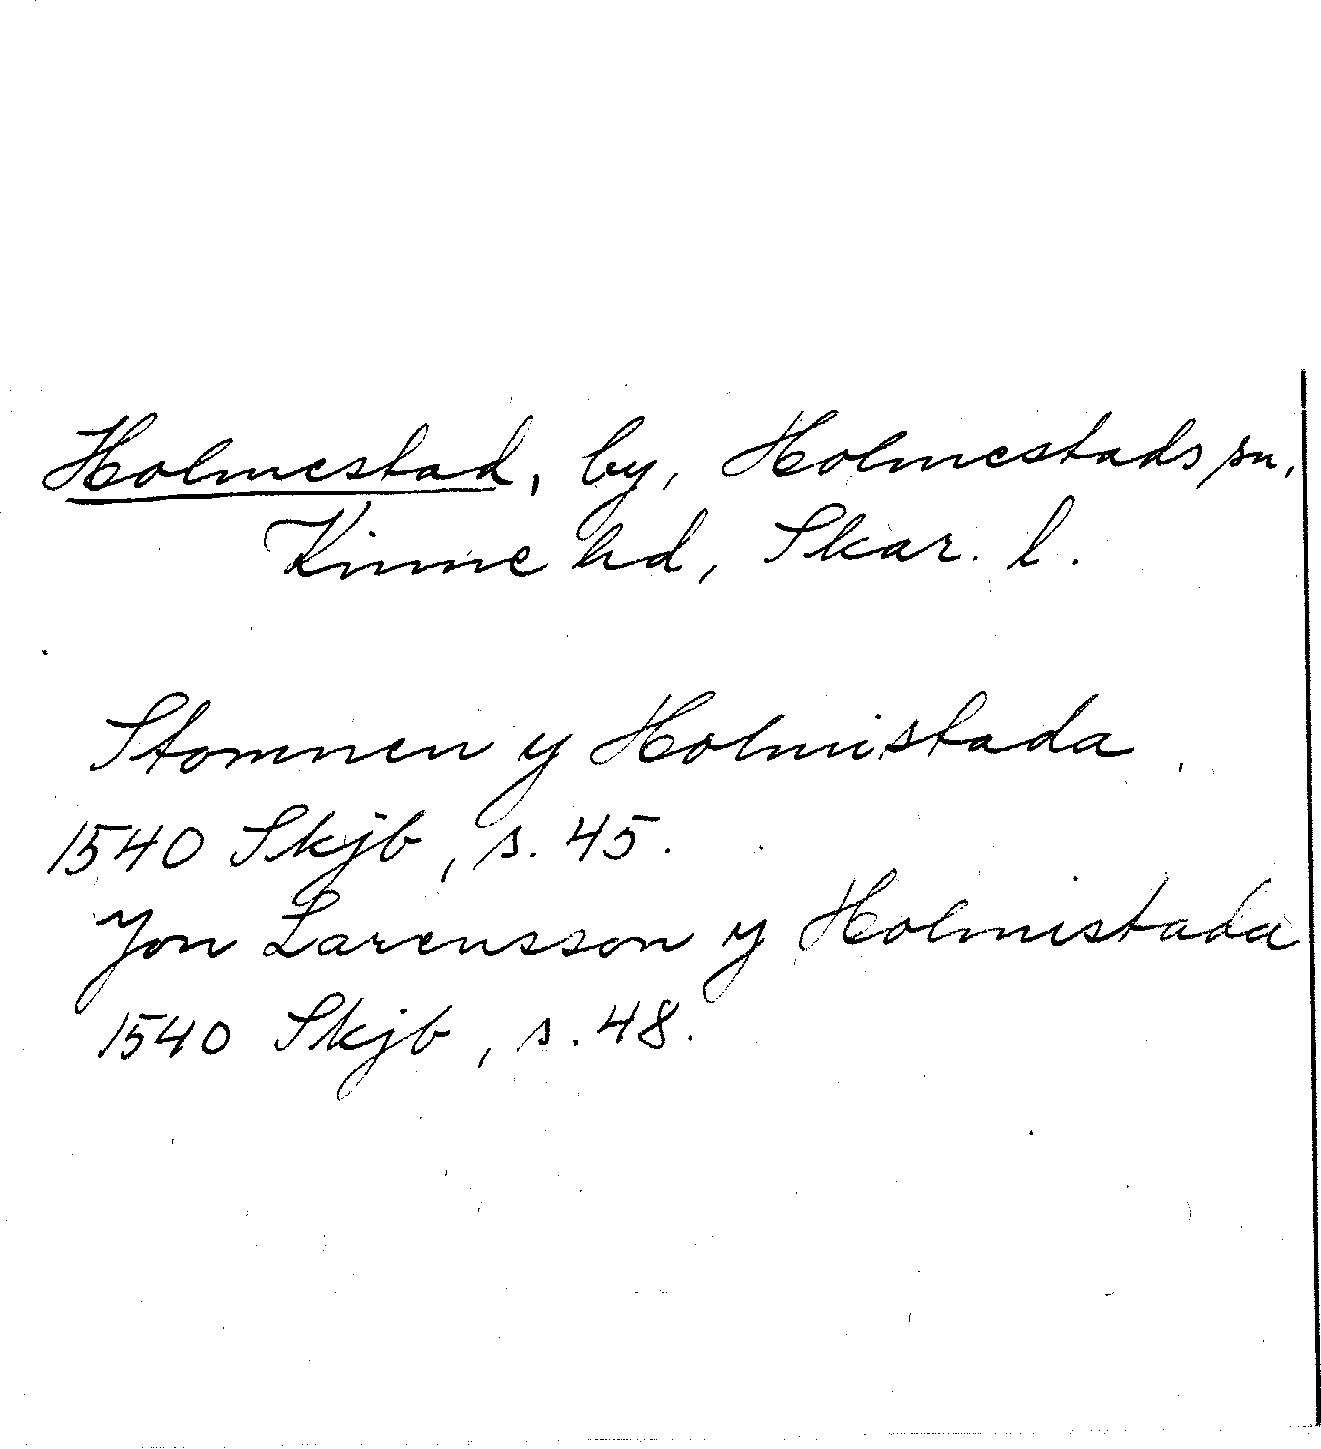 Holmestad, by, Holmestads sn,
Kinne hd, Skar. l.
Stommen y Holmistada
1540 Skjb, s. 45.
Jon Larensson y Holmistada
1540 Skjb, s. 48.